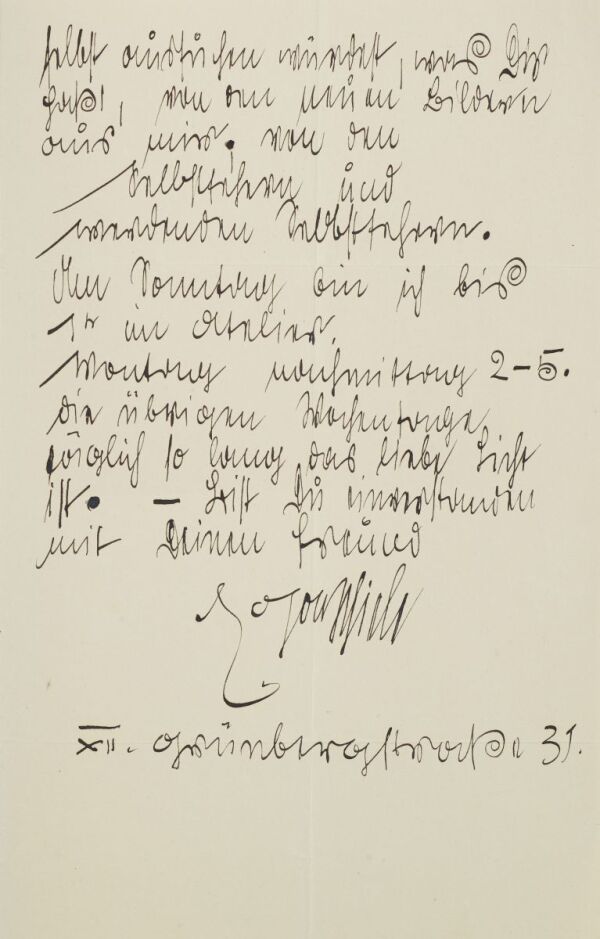 selbst aussuchen würdest, was Dir
paßt, von den neuen Bildern
aus mir; von den
Selbstsehern und
werdenden Selbstsehern.
Am Sonntag bin ich bis
1h im Atelier.
Montag nachmittag 2–5.
die übrigen Wochentage
täglich so lang das liebe Licht
ist. – Bist Du einverstanden
mit Deinen Freund
Egon Schiele
XII. Grünbergstraße 31.